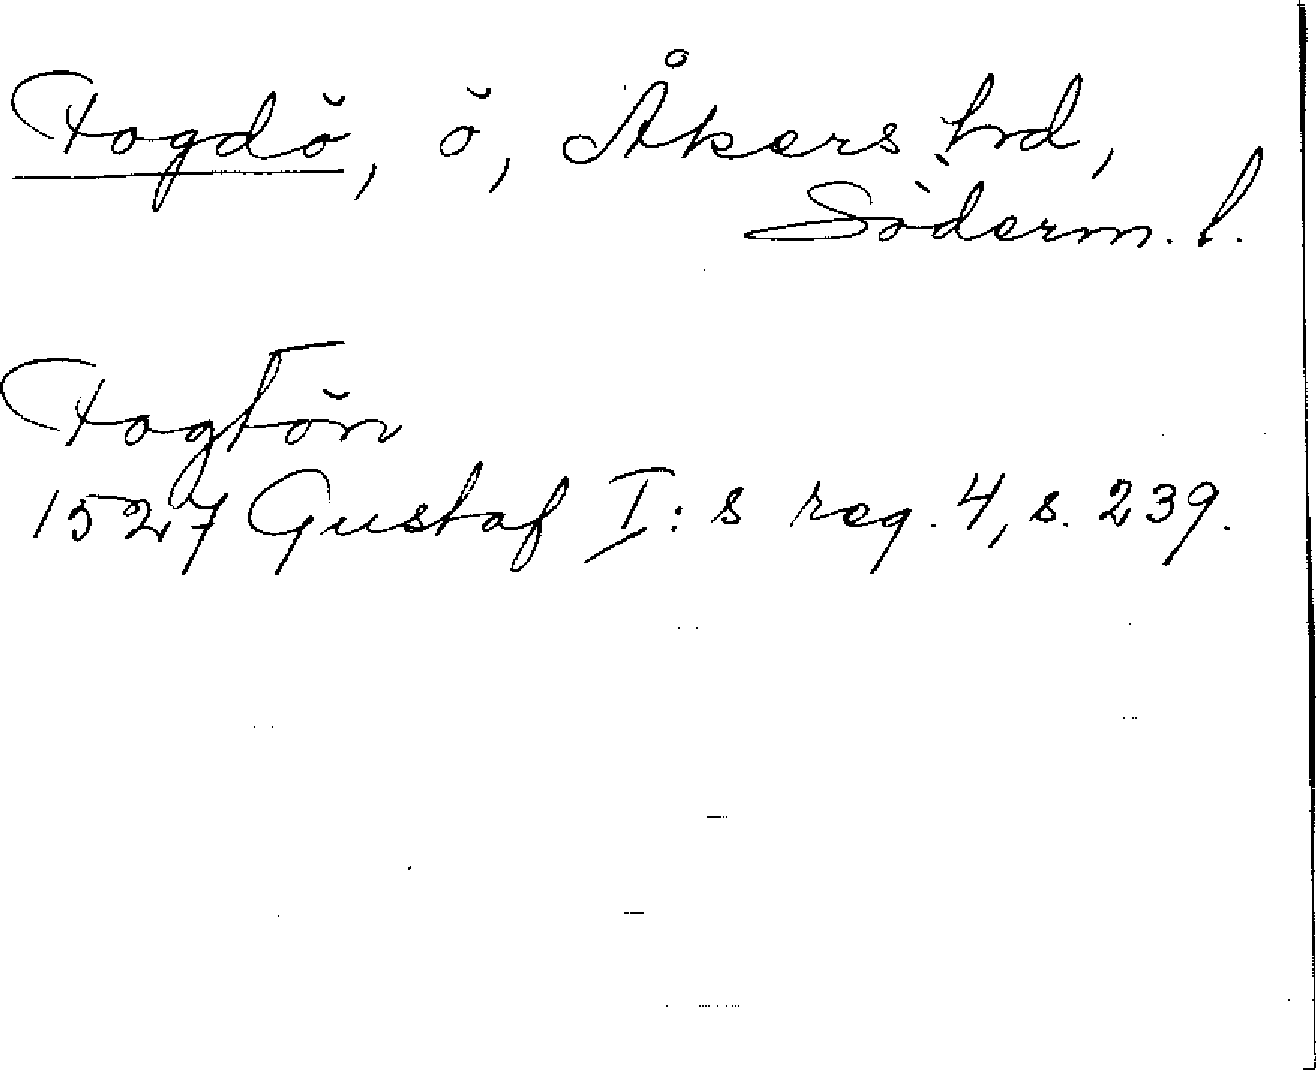 Fogdö, ö, Åkers hrd,
Söderm. l.
Fogtön
1527 Gustaf I:s reg. 4, s. 239.